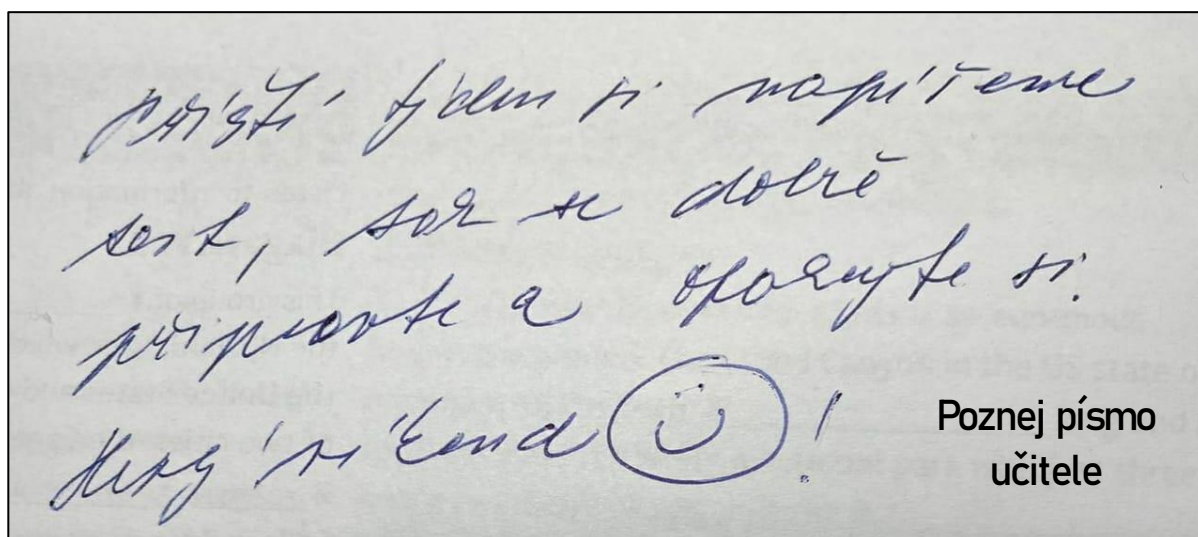 příští týden si napíšeme
test, tak se dobře
připravte a opakujte si.
Hezký víkend ☺!
Poznej písmo
učitele